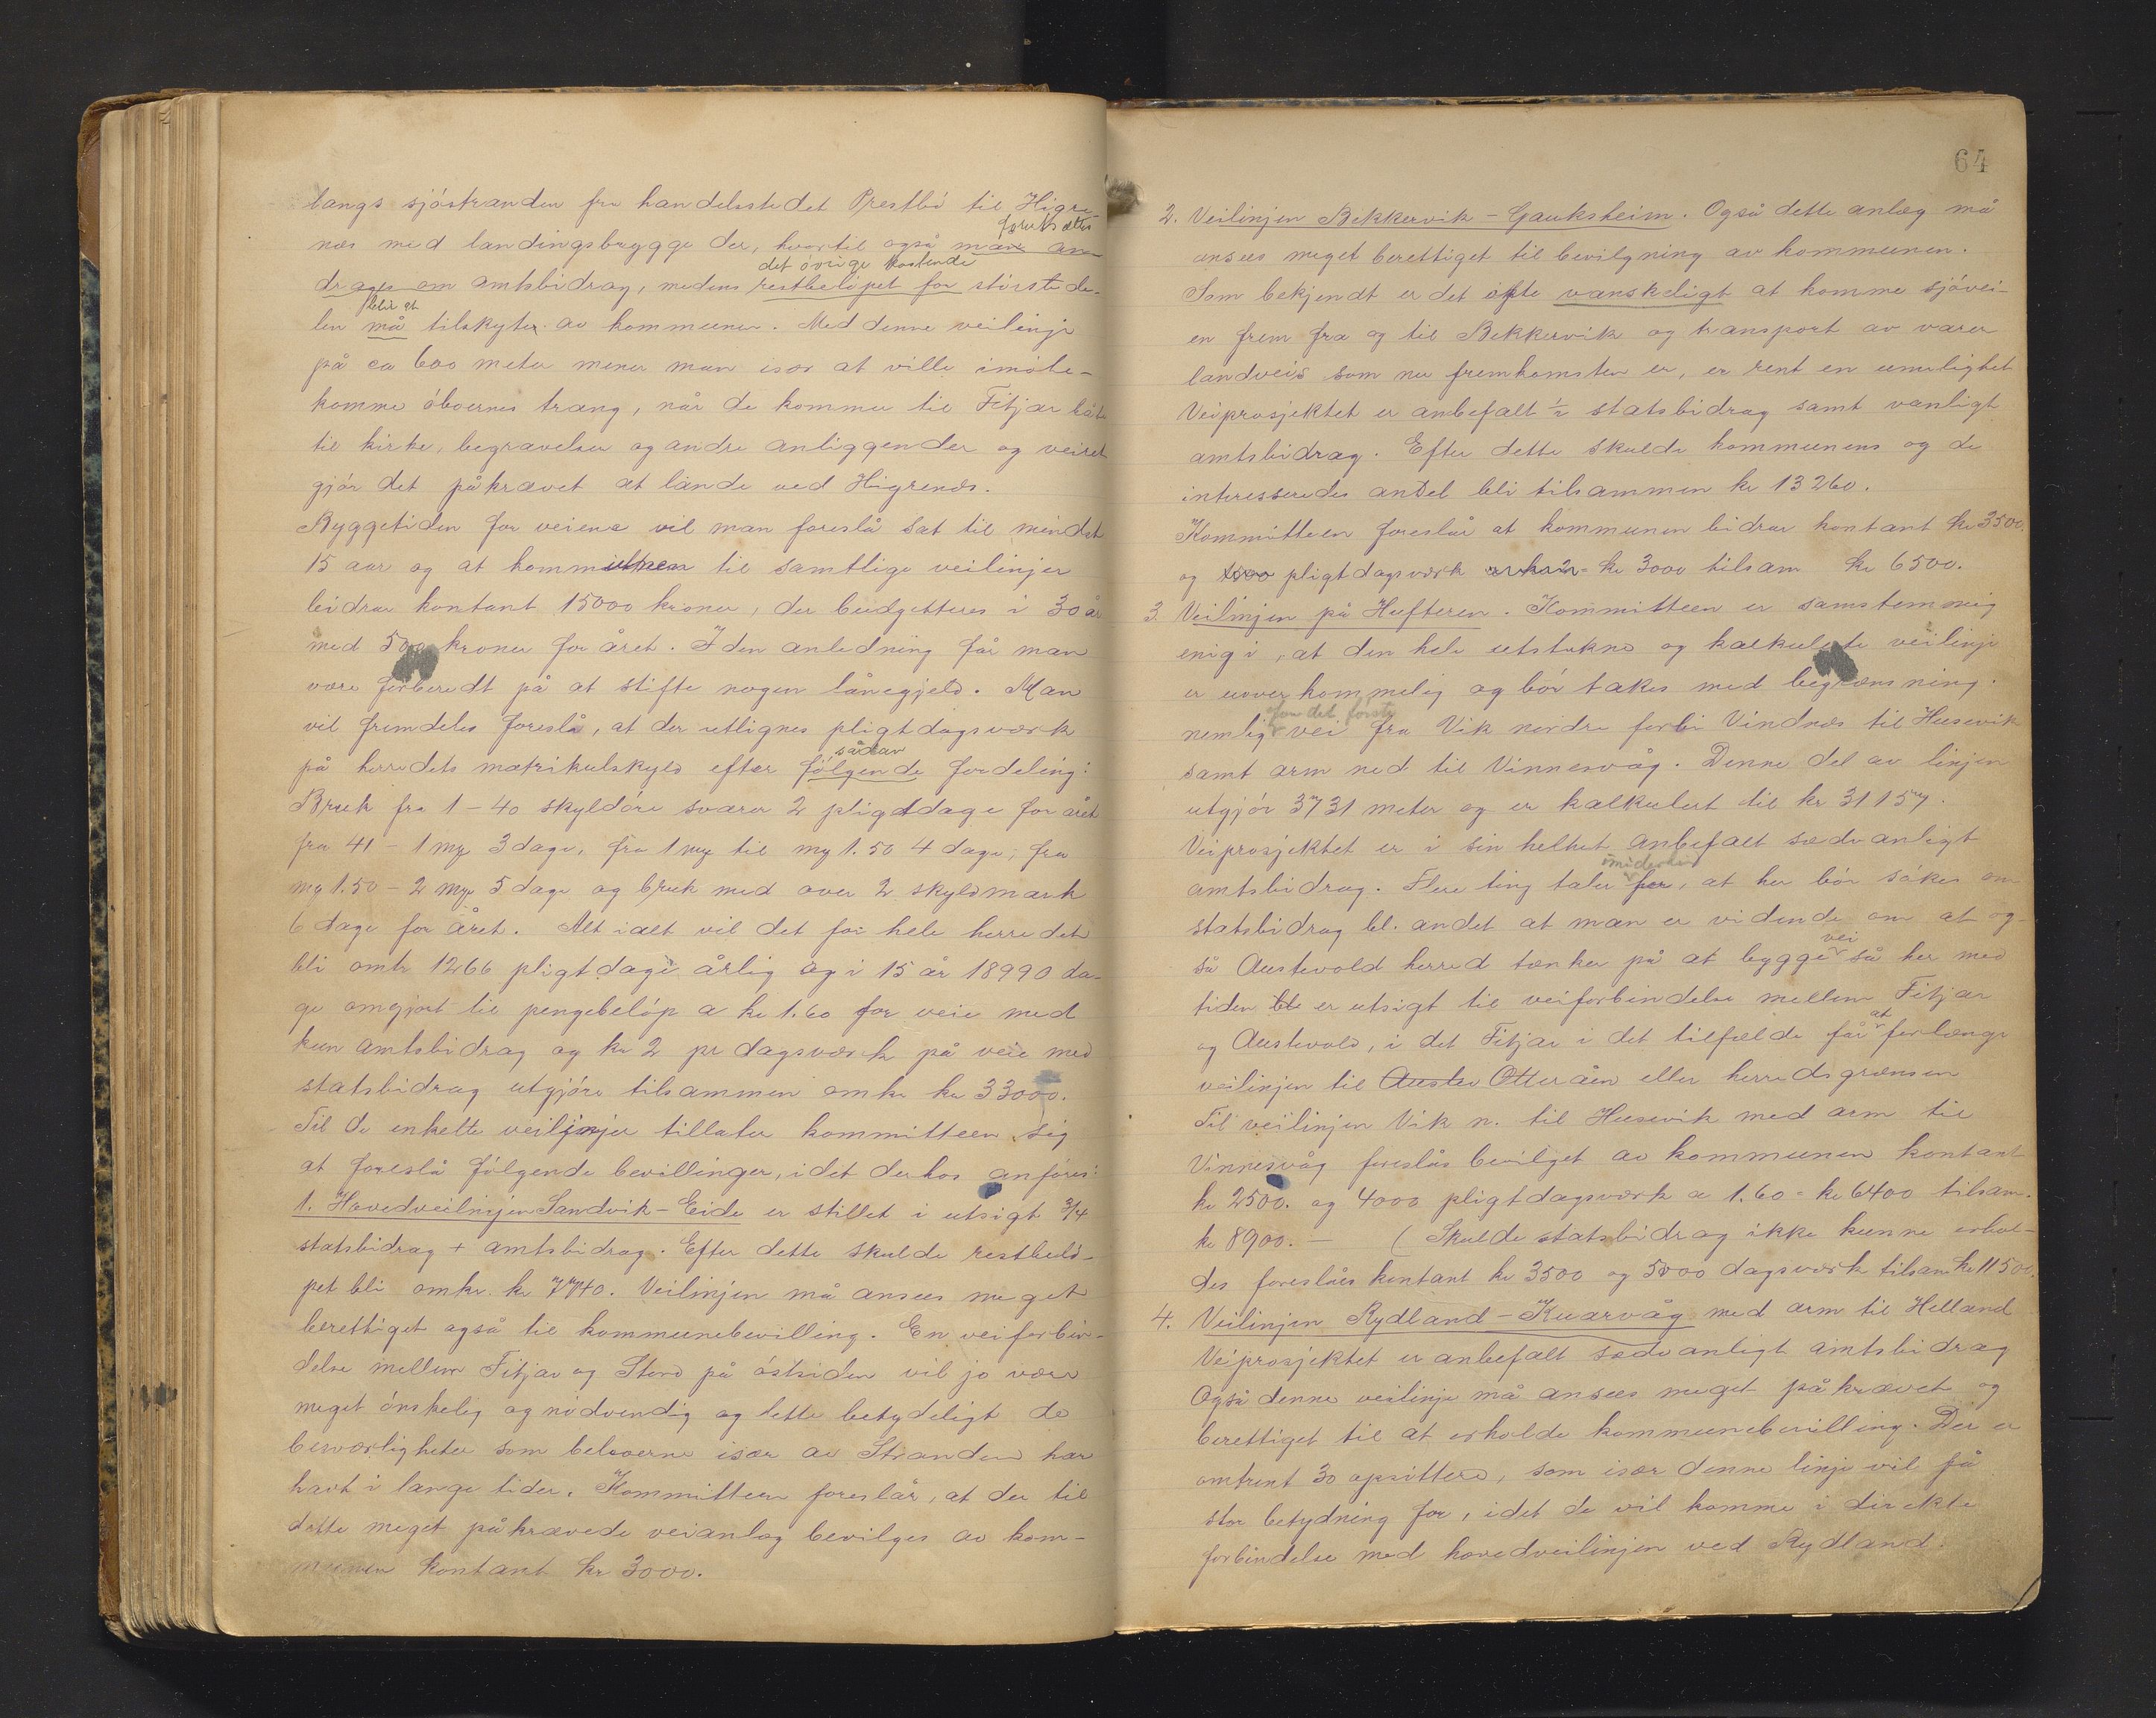 langs sjöstranden fra handelsstedet Prestbö til Higre-
forutsættes
næs med landingsbrygge der, hvortil også man an-
det övrige kostende
drages om amtsbidrag, medens restbelöpet for störste de-
blir at
len må tilskytes av kommunen. Med denne veilinje
på ca 600 meter mener man især at ville imöte-
komme öboernes trang, når de kommer til Fitjar både
til kirke, begravelser og andre anliggender og veiret
gjör det påkrævet at lande ved Higrenæs.
Byggetiden for veiene vil man foreslå sat til mindst
15 aar og at kommunen til samtlige veilinjer
bidrar kontant 15000 kroner, der budgetteres i 30 år
med 500 kroner for året. I den anledning får man
være forberedt på at stifte nogen lånegjeld. Man
vil fremdeles foreslå, at der utlignes pligtdagsværk
sådan
på herredets matrikulskyld efter fölgende fordeling:
Bruk fra 1-40 skyldöre svarer 2 pligtdage for året
fra 41 - 1 my 3 dage, fra 1 my til my 1.50 4 dage, fra
my 1.50 - 2 my 5 dage og bruk med over 2 skyldmark
6 dage for året. Alt ialt vil det for hele herredet
bli omtr 1266 pligtdage årlig og i 15 år 18990 da-
ge omgjort til pengebelöp a kr 1.60 for veie med
kun amtsbidrag og kr 2 pr dagsværk på veie med
statsbidrag utgjöre tilsammen omkr kr 33000.
Til de enkelte veilinjer tillater kommitteen sig
at foreslå fölgende bevillinger, idet derhos anföres:
1. Hovedveilinjen Sandvik - Eide er stillet i utsigt 3/4
statsbidrag + amtsbidrag. Efter dette skulde restbelö-
pet bli omkr. kr 7740. Veilinjen må ansees meget
berettiget også til kommunebevilling. En veiforbin-
delse mellem Fitjar og Stord på östsiden vil jo være
meget önskelig og nödvendig og lette betydeligt de
besværligheter som beboerne især av Stranden har
havt i lange tider. Kommitteen foreslår, at der til
dette meget påkrævede veianlæg bevilges av kom-
munen kontant kr 3000.
64
2. Veilinjen Bekkervik - Gauksheim. Også dette anlæg må
ansees meget berettiget til bevilgning av kommunen.
Som bekjendt er det ofte vanskeligt at komme sjövei-
en frem fra og til Bekkervik og transport av varer
landveis som nu fremkomsten er, er rent en umulighet
Veiprosjektet er anbefalt 1/2 statsbidrag samt vanligt
amtsbidrag. Efter dette skulde kommunens og de
interesseredes andel bli tilsammen kr 13260.
Kommitteen foreslår at kommunen bidrar kontant kr 3500
og 1500 pligtdagsværk a kr 2 = kr 3000 tilsam kr 6500.
3. Veilinjen på Hufteren. Kommitteen er samstemmig
enig i, at den hele utstukne og kalkulerte veilinje
er uoverkommelig og bör takes med begrænsning.
for det förste
nemlig vei fra Vik nordre forbi Vindnes til Husevik
samt arm ned til Vinnesvåg. Denne del av linjen
utgjör 3731 meter og er kalkulert til kr 31157.
Veiprosjektet er i sin helhet anbefalt sædvanligt
imidlertid
amtsbidrag. Flere ting taler for, at her bör sökes om
statsbidrag bl. andet at man er vidende om at og-
vei
så Austevold herred tænker på at bygge så her med
tiden ble er utsigt til veiforbindelse mellem Fitjar
at
og Austevold, i det Fitjar i det tilfælde får forlænge
veilinjen til Auster Otteråen eller herredsgrænsen
Til veilinjen Vik n. til Husevik med arm til
Vinnesvåg foreslås bevilget av kommunen kontant
kr 2500. og 4000 pligtdagsværk a 1.60 = kr 6400 tilsam.
kr 8900. - ( Skulde statsbidrag ikke kunne erhol-
des foreslåes kontant kr 3500 og 5000 dagsværk tilsam kr 11500.
4. Veilinjen Rydland - Kuarvåg med arm til Helland
Veiprosjektet er anbefalt sædvanligt amtsbidrag
Også denne veilinje må ansees meget påkrævet og
berettiget til at erholde kommunebevilling. Der er
omtrent 30 opsittere, som især denne linje vil få
stor betydning for, idet de vil komme i direkte
forbindelse med hovedveilinjen ved Rydland.